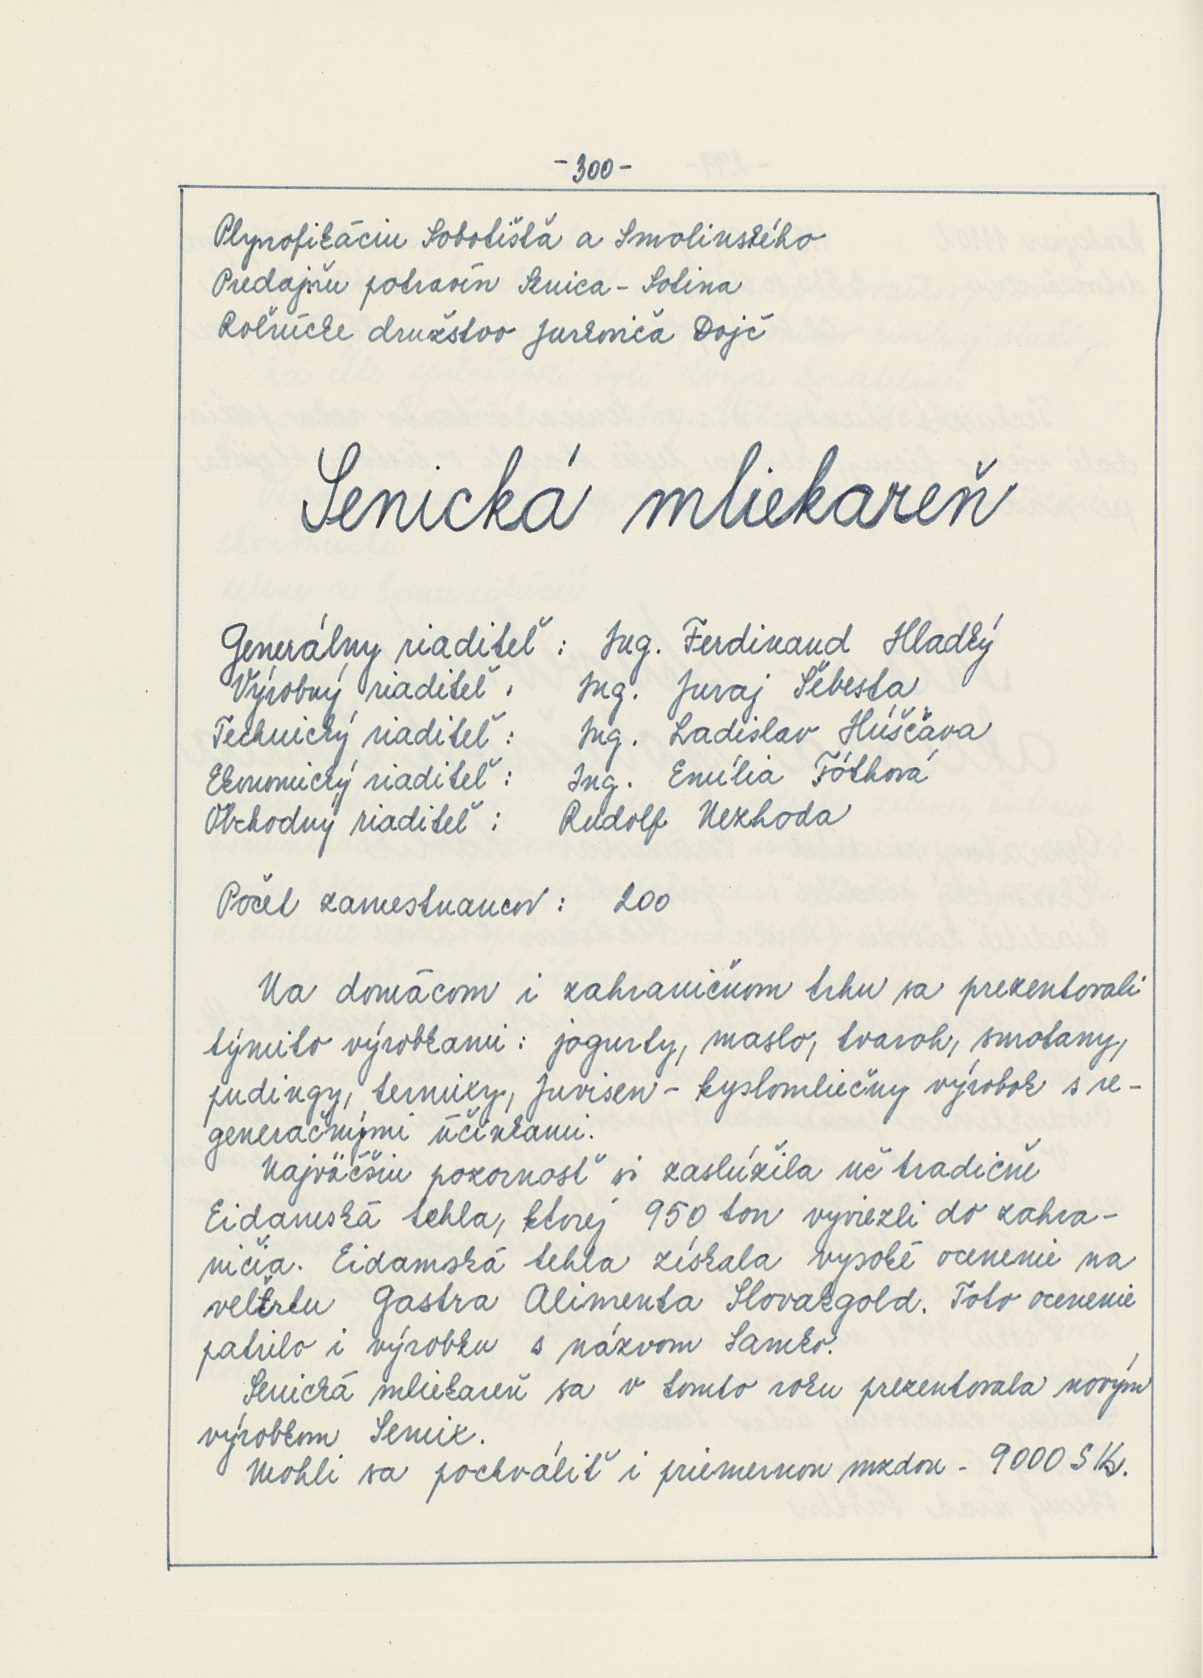 -300-
Plynofikáciu Sobotišťa a Smolinského
Predajňu potravín Senica - Sotina
Roľnícke družstvo Jurkoviča Dojč
Senická mliekareň
Generálny riaditeľ : Ing. Ferdinand Hladký
Výrobný riaditeľ : Ing. Juraj Šebesta
Technický riaditeľ : Ing. Ladislav Húščava
Ekonomický riaditeľ : Ing. Emília Tóthová
Obchodný riaditeľ : Rudolf Nezhoda
Počet zamestnancov : 200
Na domácom i zahraničnom trhu sa prezentovali
týmito výrobkami : jogurty, maslo, tvaroh, smotany,
pudingy, termixy, Juvisen - kyslomliečny výrobok s re-
generačnými účinkami.
Najväčšiu pozornosť si zaslúžila už tradične
Eidamská tehla, ktorej 950 ton vyviezli do zahra-
ničia. Eidamská tehla získala vysoké ocenenie na
veľtrhu Gastra Alimenta Slovakgold. Toto ocenenie
patrilo i výrobku s názvom Samko.
Senická mliekareň sa v tomto roku prezentovala novým
výrobkom Semix.
Mohli sa pochváliť i priemernou mzdou - 9000 Sk.